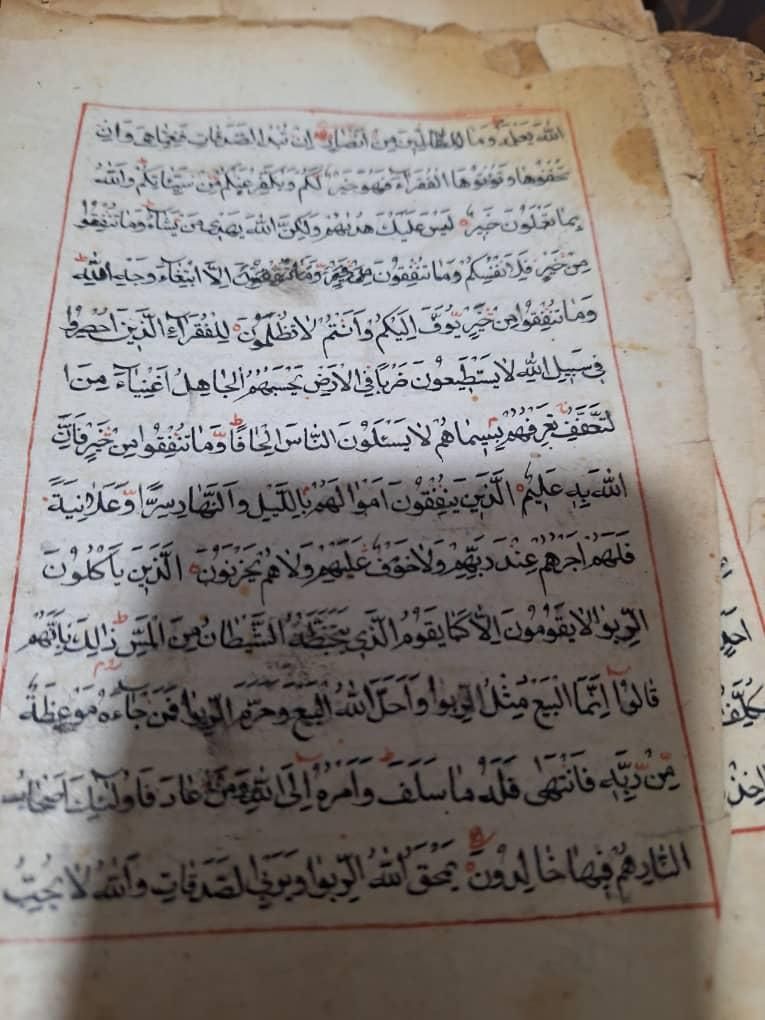 الله يعلمه وما للظالمين من انصار ان تبدوا الصدقات فنعما هي وان
تخفوها وتؤتوها الفقرآء فهو خير لكم ويكفر عنكم من سيئاتكم والله
بما تعملون خبير ليس عليك هديهم ولكن الله يهدي من يشآء وما تنفقوا
من خير فلانفسكم وما تنفقون الا ابتغآء وجه الله
وما تنفقوا من خير يوف اليكم وانتم لا تظلمون للفقرآء الذين احصروا
في سبيل الله لا يستطيعون ضربا في الارض يحسبهم الجاهل اغنيآء من ا
لتعفف تعرفهم بسيماهم لا يسئلون الناس الحافا وما تنفقوا من خير فان
الله به عليم الذين ينفقون اموالهم بالليل والنهار سرا وعلانية
فلهم اجرهم عند ربهم ولا خوف عليهم ولا هم يحزنون الذين ياكلون
الربوا لا يقومون الا كما يقوم الذي يتخبطه الشيطان من المس ذالك بانهم
قالوا انما البيع مثل الربوا واحل الله البيع وحرم الربوا فمن جآءه موعظة
من ربه فانتهى فله ما سلف وامره الى الله ومن عاد فاولئك اصحاب
النار هم فيها خالدون يمحق الله الربوا ويربي الصدقات والله لا يحب